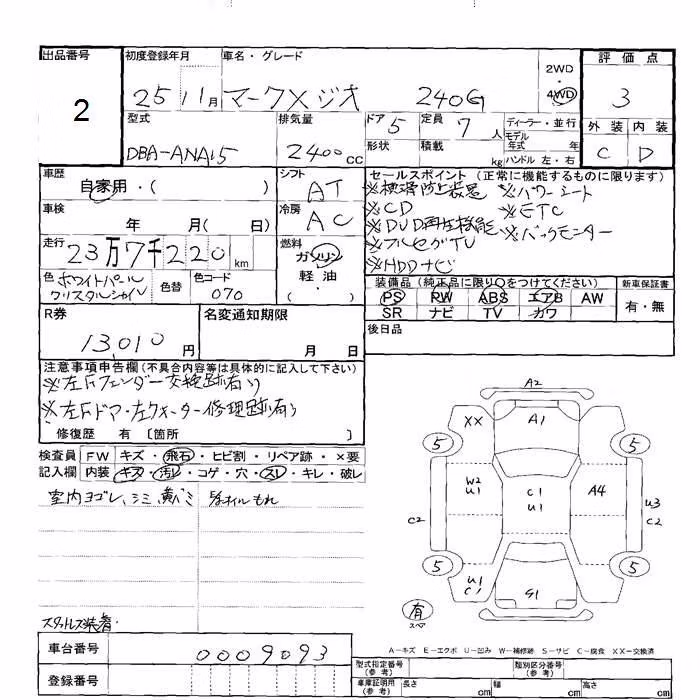 出品番号 初度登録年月 車名・グレード 2WD 評価点
2 25 11月 マークXジオ 240G 4WD 3
型式 排気量 ドア 5 定員 7人 ディーラー・並行 外装 内装
DBA-ANA15 2400cc 形状 積載 kg モデル年式 年 C D
ハンドル 左・右
車歴 シフト セールスポイント (正常に機能するものに限ります)
自家用・( ) AT ※横滑防止装置 ※パワーシート
車検 冷房 ※CD ※ETC
年 月( 日) AC ※DVD再生機能 ※バックモニター
走行 燃料 ※フルセグTV
23万7千220km ガソリン ※HDDナビ
色 ホワイトパール 色替 色コード 軽油・ 装備品 (純正品に限り○をつけてください) 新車保証書
クリスタルシャイン 070 ( ) PS PW ABS エアB AW 有・無
R券 名変通知期限 SR ナビ TV カワ
13,010円 月 日 後日品
注意事項申告欄 (不具合内容等は具体的に記入して下さい)
※左Fフェンダー交換跡有り
※左Fドア・左クォーター修理跡有り
修復歴 有 〔箇所 〕
検査員 FW キズ・飛石・ヒビ割・リペア跡・×要
記入欄 内装 キズ・汚レ・コゲ・穴・スレ・キレ・破レ
室内ヨゴレ、シミ、黄バミ オイルもれ
スタットレス装着.
A2
XX A1
5 5
W2 U1 C1 U1 A4
C2 U3 C2
5 5
U1 C1 G1
有
スペア
A-キズ E-エクボ U-凹み W-補修跡 S-サビ C-腐食 XX-交換済
車台番号 0009093 型式指定番号 (参考) 類別区分番号 (参考)
登録番号 車庫証明用 (参考) 長さ cm 幅 cm 高さ cm